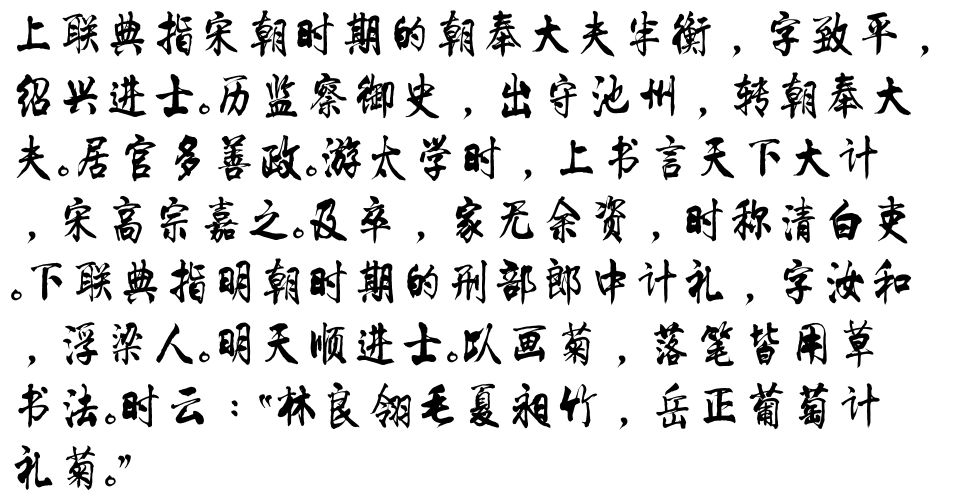 上联典指宋朝时期的朝奉大夫半衡，字致平，
绍兴进士。历监察御史，出守池州，转朝奉大
夫。居官多善政。游太学时，上书言天下大计
，宋高宗嘉之。及卒，家无余资，时称清白吏
。下联典指明朝时期的刑部郎中计礼，字汝和
，浮梁人。明天顺进士。以画菊，落笔皆用草
书法。时云：“林良翎毛夏昶竹，岳正葡萄计
礼菊。”